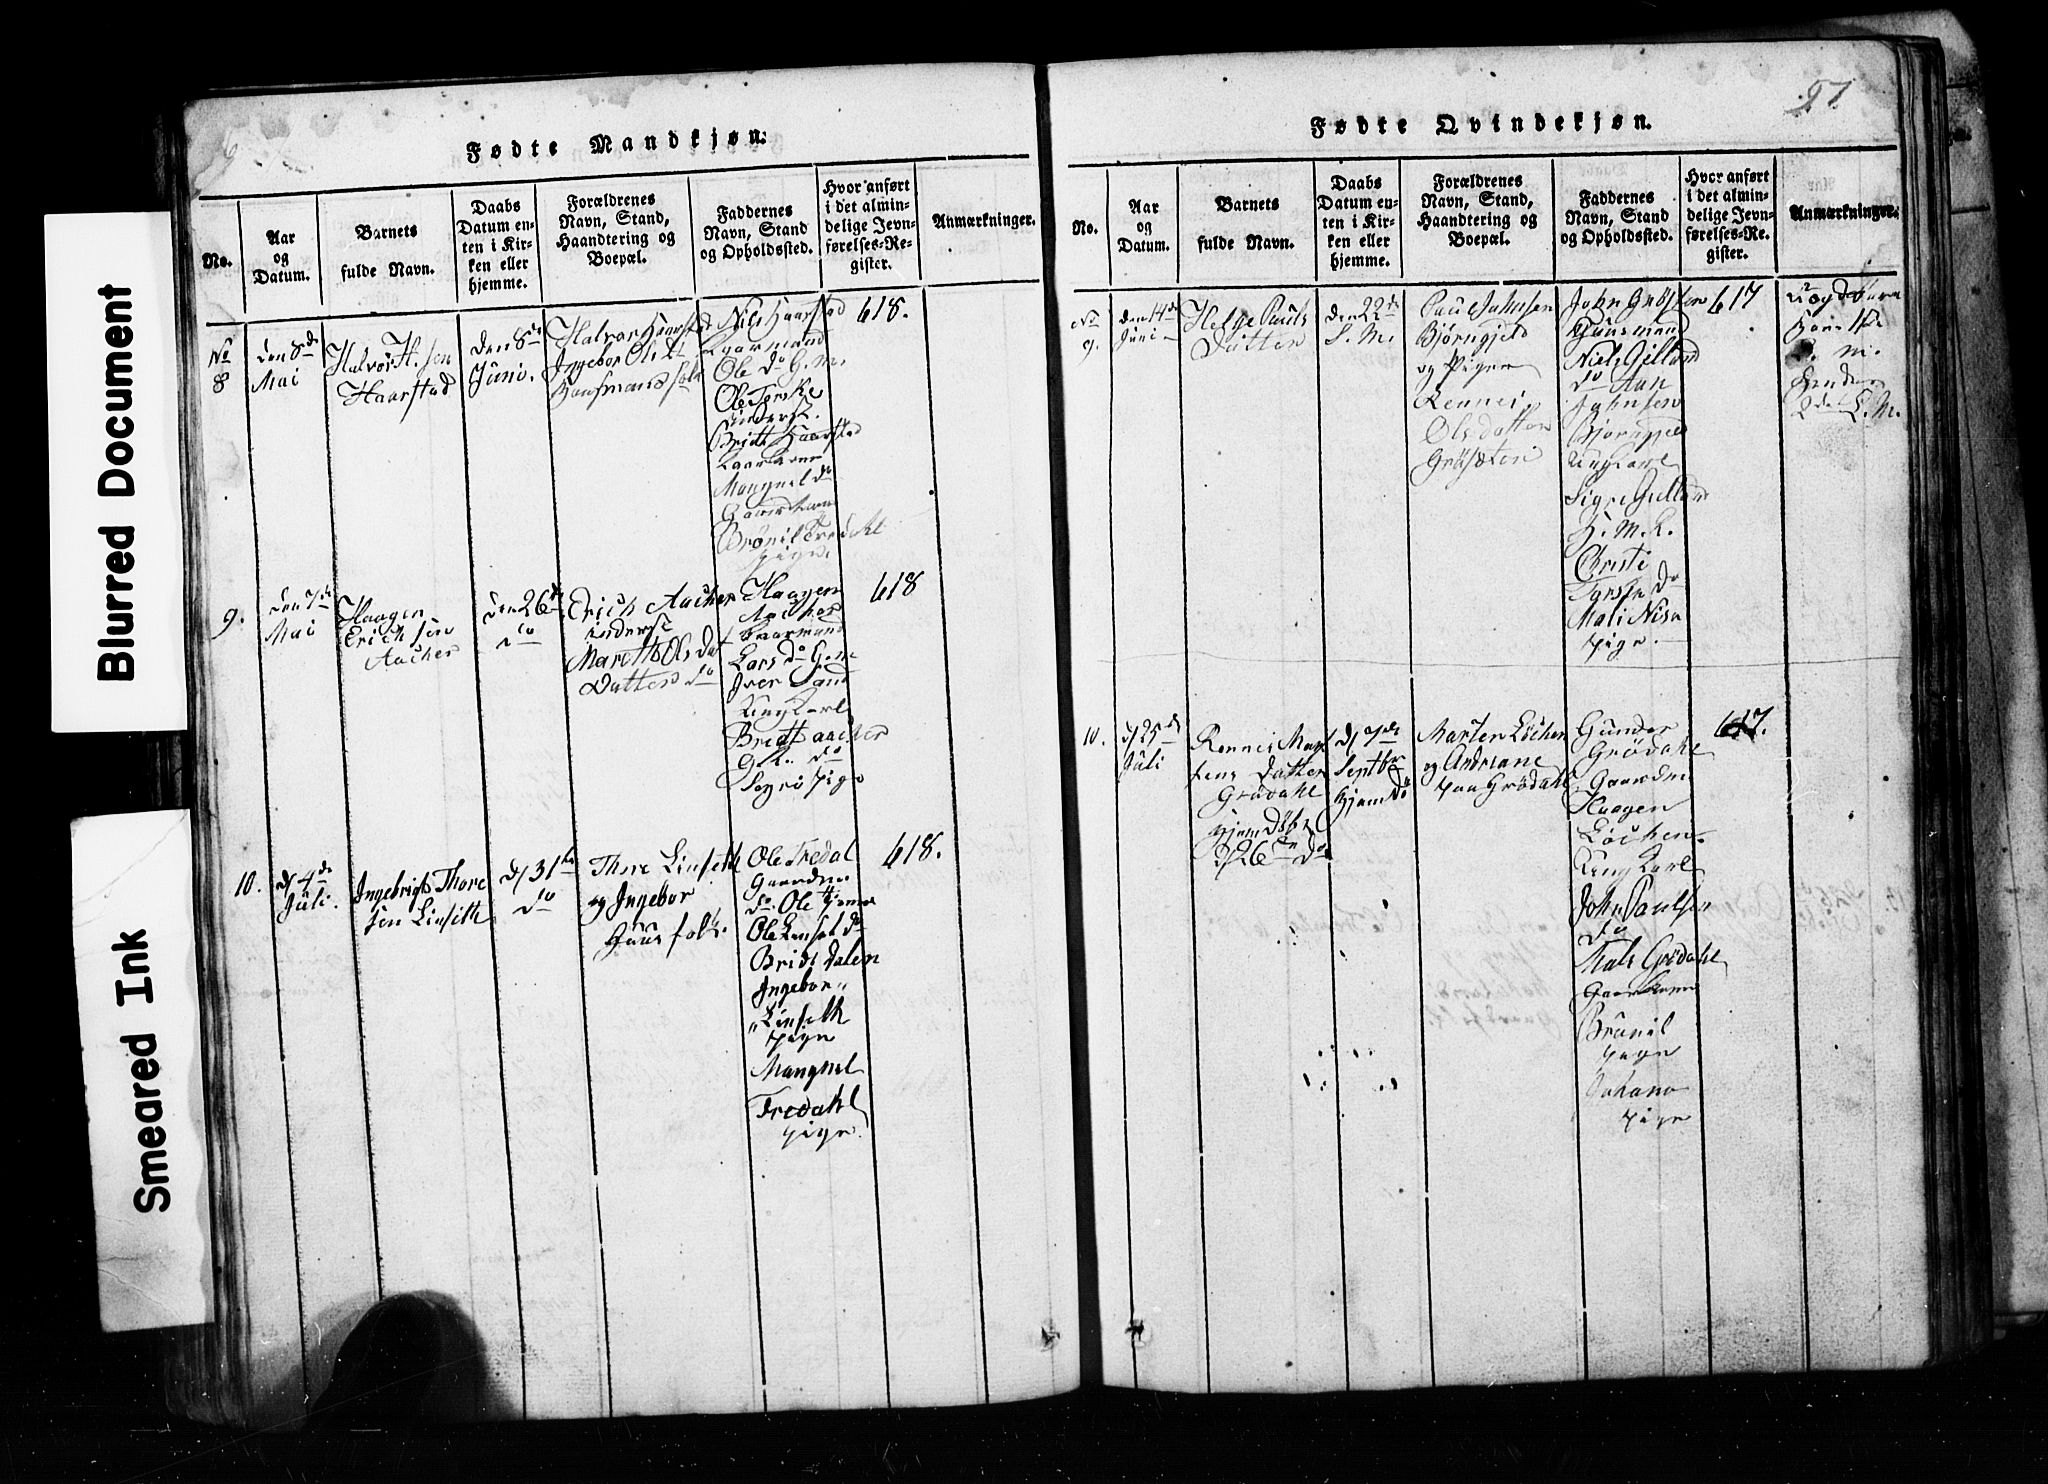 Blurred Document
Smeared Ink
Fødte Mandkjøn.
No.
Aar
og
Datum.
Barnets
fulde Navn.
Daabs
Datum en-
ten i Kir-
ken eller
hjemme.
Forældrenes
Navn, Stand,
Haandtering og
Boepæl.
Faddernes
Navn, Stand
og Opholdssted.
Hvor anført
i det almin-
delige Jevn-
førelses-Re-
gister.
Anmærkninger.
No
8
den 8de
Mai
Halvor H.sen
Haarstad
den 8de
Juni.
Halvor Haarstad
Ingebor Olsdt
Huusmansfolk
Nils Haarstad
Kaarmand
Ole do G. M.
Ole
Inderst.
Bridt Haarstad
Kaarkone
Mangnel do
Gaardkone
Brönil Tredahl
pige.
618.
9.
den 7de
Mai
Haagen
Erichsen
Aacher
den 26de
do
Erich Aacher
inderst
Marith Olsdat
Datter do
Haagen
Aacher
Kaarmand
Lars do G.m
Iver Sand
Ung Karl
Bridt Aacher
G.K. do
Sigri pige
618
10.
d 4de
Juli.
Ingebrigt Thore
sen Linseth
d 31te
do
Thore Linseth
og Ingebor
Huusfolk.
Ole Tredal
Gaardm
do. Ole
Ole Linset do
Bridt Dalen
Ingebor „
„ Linseth
pige
Mangnel
Tredahl
pige.
618.
27
Fødte Qvindekjøn.
No.
Aar
og
Datum.
Barnets
fulde Navn.
Daabs
Datum en-
ten i Kir-
ken eller
hjemme.
Forældrenes
Navn, Stand,
Haandtering og
Boepæl.
Faddernes
Navn, Stand
og Opholdssted.
Hvor anført
i det almin-
delige Jevn-
førelses-Re-
gister.
Anmærkninger.
No
9.
den 14de
Juni
Helge Pauls
Datter
den 22de
S. M.
Paul Johnsen
Björngjeld
og Pigen
Rennei
Olsdatter
Gröseten
John Gröseten
Huusmand
Niels Gilland
do Aan
Johnsen
Björngjeld
Ung Karl
Sigri Gilland
H. M. K.
Christi
do
Mali Nisn
pige.
617
hans 1te
L. M.
hendes
2det L. M.
10.
d 25de
Juli
Rennei Mort
sens Datter
Grödahl
hjemdöbt
d 26de do
d 7de
Septbr
hjemdö
Morten Löchen
og Andriane
paa Grödahl
Gunder
Grödahl
Gaardm.
Haagen
Löchen.
Ung Karl
John Paulsen
do
Mali Grödahl
Gaardkone
Brönil
pige
Johana
pige
617.